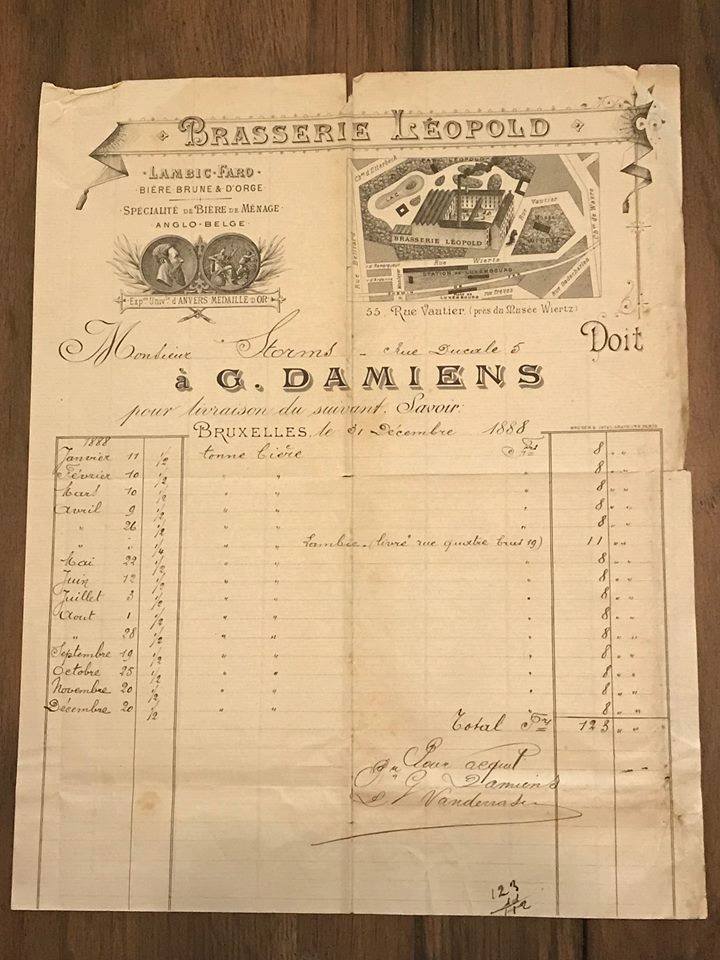 BRASSERIE LÉOPOLD
LAMBIC-FARO
BIÈRE BRUNE & D'ORGE
SPÉCIALITÉ DE BIÈRE DE MÉNAGE
ANGLO-BELGE
Exp.on Univ.lle D'ANVERS MEDAILLE D'OR
Ch.ée d'Etterbeek
LÉOPOLD
LAC
Rue Belliard
BRASSERIE LÉOPOLD
Rue Vautier
MUSÉE WIERTZ
Ch.ée de Wavre
Rue Wiertz
STATION DU LUXEMBOURG
LUXEMBOURG
rue Trèves
55, Rue Vautier, (près du Musée Wiertz)
Monsieur Storms - Rue Ducale 5 Doit
à G. DAMIENS
pour livraison du suivant, Savoir:
BRUXELLES, le 31 Décembre 1888
1888
Janvier 11 1/2 tonne bière Frs 8 " "
Février 10 1/2 " " " 8 " "
Mars 10 1/2 " " " 8 " "
Avril 9 1/2 " " " 8 " "
" 26 1/2 " " " 8 " "
" " 1/4 " " Lambic (livré rue quatre bras 19) 11 " "
Mai 22 1/2 " " " 8 " "
Juin 12 1/2 " " " 8 " "
Juillet 3 1/2 " " " 8 " "
Aout 1 1/2 " " " 8 " "
" 28 1/2 " " " 8 " "
Septembre 19 1/2 " " " 8 " "
Octobre 25 1/2 " " " 8 " "
Novembre 20 1/2 " " " 8 " "
Décembre 20 1/2 " " " 8 " "
Total Frs 123 " "
Pour acquit
Pr G Damiens
123